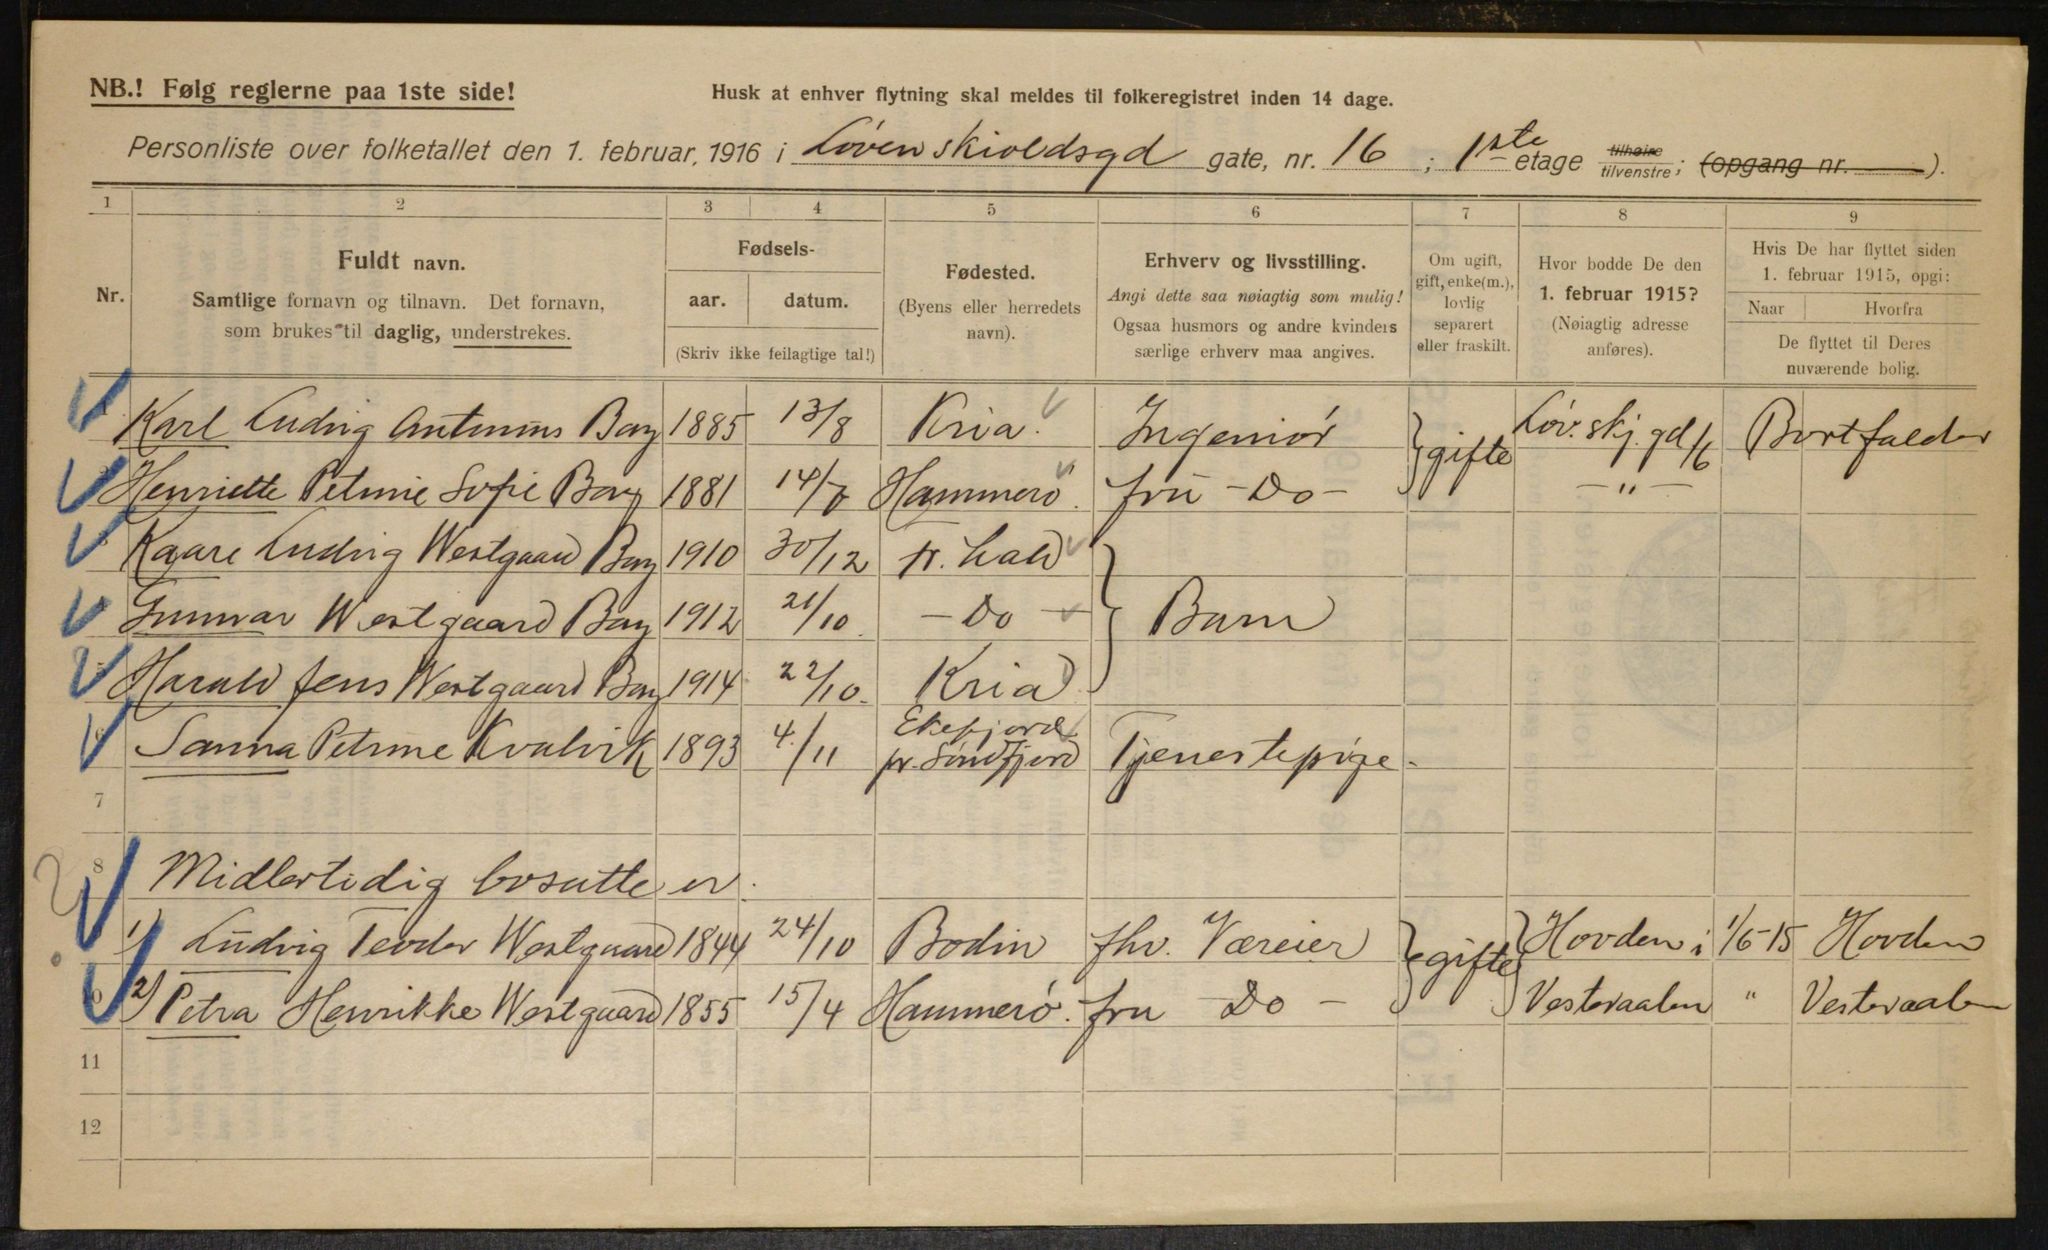 NB.! Følg reglerne paa 1ste side!
Husk at enhver flytning skal meldes til folkeregistret inden 14 dage.
Personliste over folketallet den 1. februar, 1916 i Løvenskioldsgd gate, nr. 16 ; 1ste etage tilhøire tilvenstre; (opgang nr. ).
1 2 3 4 5 6 7 8 9
Nr.
Fuldt navn.
Samtlige fornavn og tilnavn. Det fornavn,
som brukes til daglig, understrekes.
Fødsels-
aar. datum.
(Skriv ikke feilagtige tal!)
Fødested.
(Byens eller herredets
navn).
Erhverv og livsstilling.
Angi dette saa nøiagtig som mulig!
Ogsaa husmors og andre kvinders
særlige erhverv maa angives.
Om ugift,
gift, enke(m.),
lovlig
separert
eller fraskilt.
Hvor bodde De den
1. februar 1915?
(Nøiagtig adresse
anføres).
Hvis De har flyttet siden
1. februar 1915, opgi:
Naar Hvorfra
De flyttet til Deres
nuværende bolig.
Karl Ludvig Antonius Bay 1885 13/8 Kria. Ingeniør gifte Løv.skj.gd 16 Bortfalder
Henriette Petrine Sofie Bay 1881 14/8 Hammerø. fru - Do - - " -
Kaare Ludvig Westgaard Bay 1910 30/12 Fr. hald
Gunnar Westgaard Bay 1912 21/10 - Do - Barn
5 Harald Jens Westgaard Bay 1914 22/10. Kria
6 Sanna Petrine Kvalvik 1893 4/11 pr. Søndfjord Tjenestepige.
7
8 Midlertidig bosatte er.
1) Ludvig Teodor Westgaard 1844 24/10 Bodin fhv. Væreier gifte Hovden i 1/6-15 Hovden
2) Petra Henrikke Westgaard 1855 15/4 Hammerø. fru Do - Vesteraalen " Vesteraalen
11
12